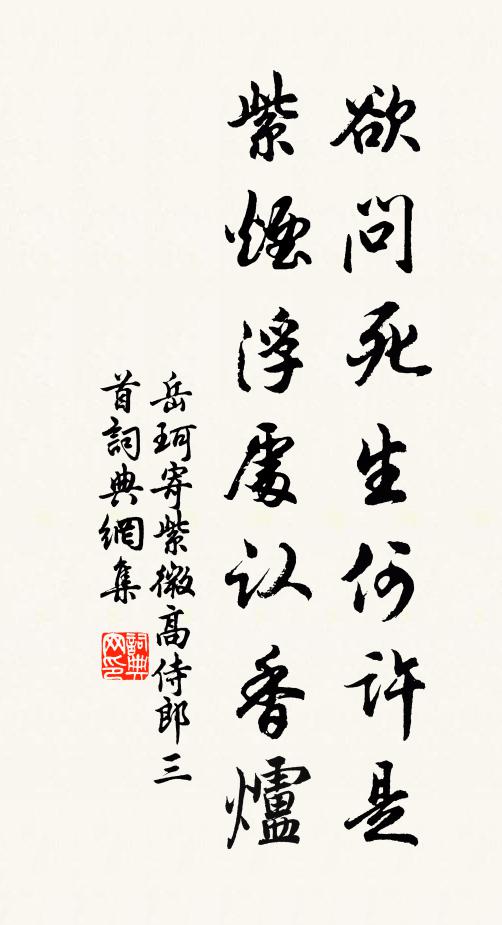 欲問死生何許是
紫煙浮處认香爐
岳珂寄紫微高侍郎三
首詞典網集
詞典网印